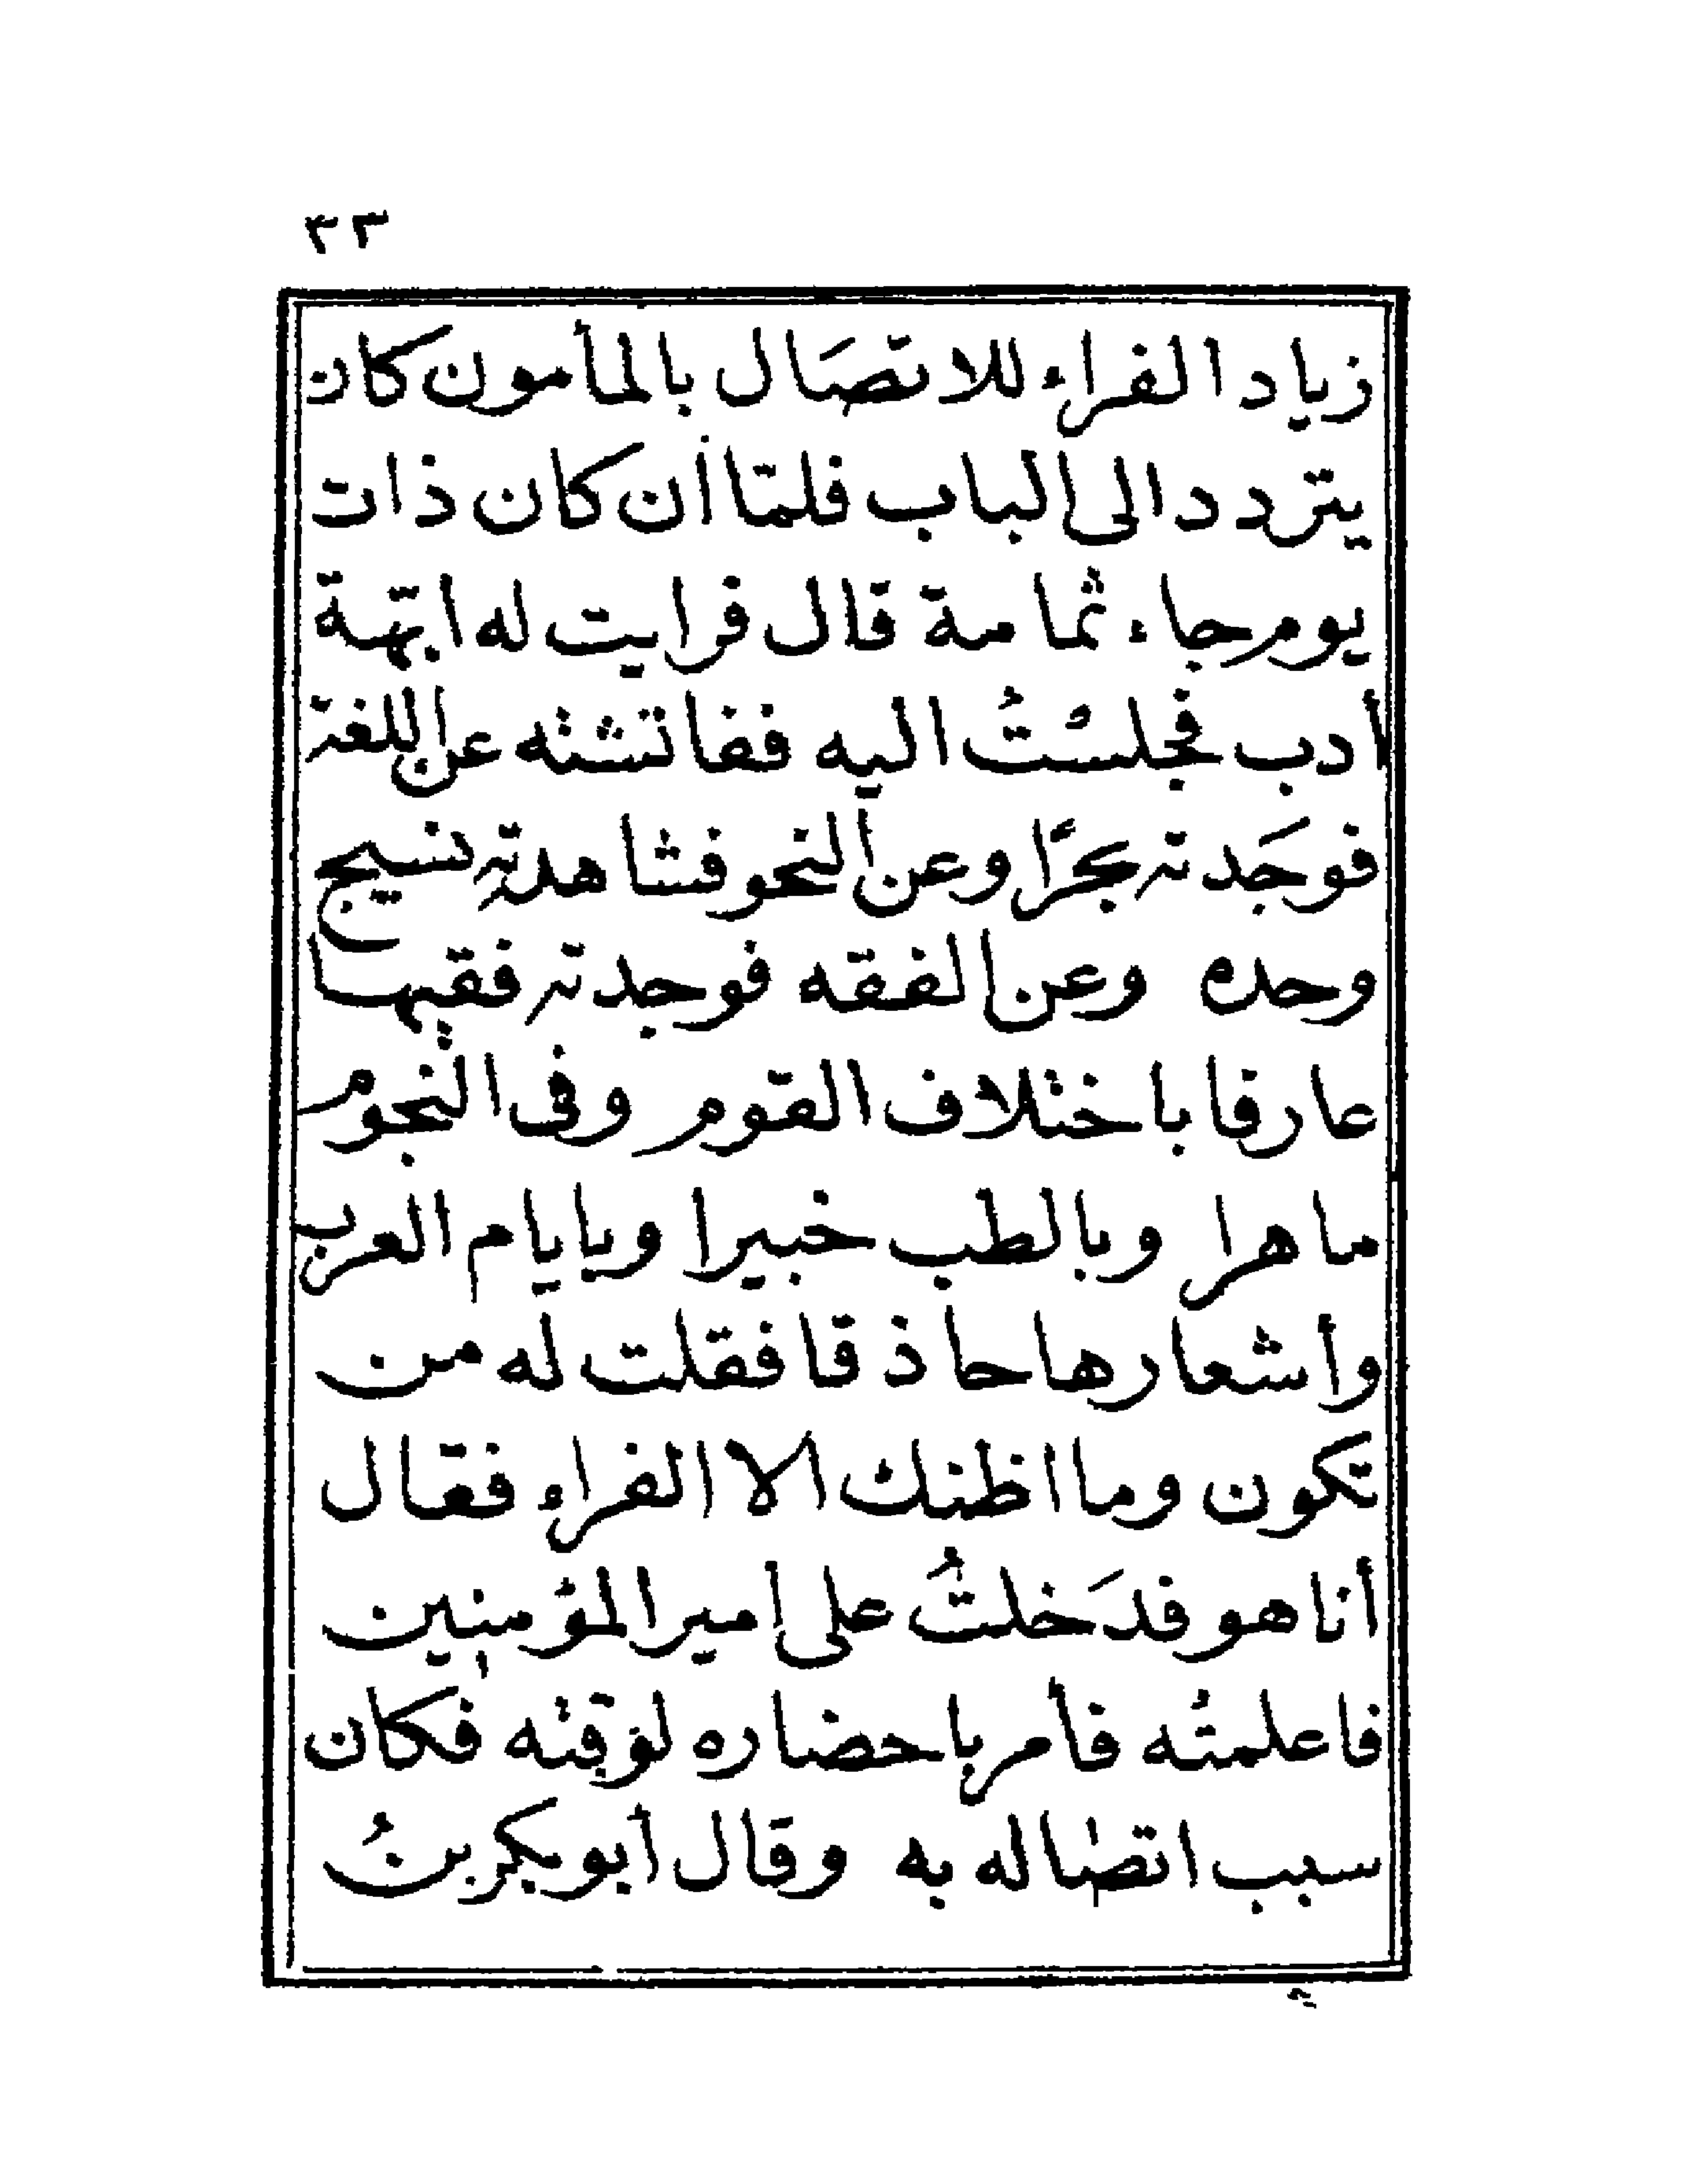 ٣٣
زياد الفراء للاتصَال بالمأمون كان
يتردد الى الباب فلمّا أن كان ذات
يوم جاء ثمامة قال فرايت له ابّهة
أدب فجلسْتُ اليه ففاتشته عن اللغة
فوجَدته بحرًا وعن النحو فشاهدته نسيج
وحده وعن الفقه فوجدته فقيها
عارفا باختلاف القوم وفى النجوم
ماهرا وبالطب خبيرا وبايام العرب
وأشعارها حاذقا فقلت له من
تكون وما اظنك الا الفراء فقال
أنا هو فدَخلتُ على امير المؤمنين
فاعلمتُه فأمر باحضاره لوقته فكان
سبب اتصاله به وقال أبو بكر بنُ